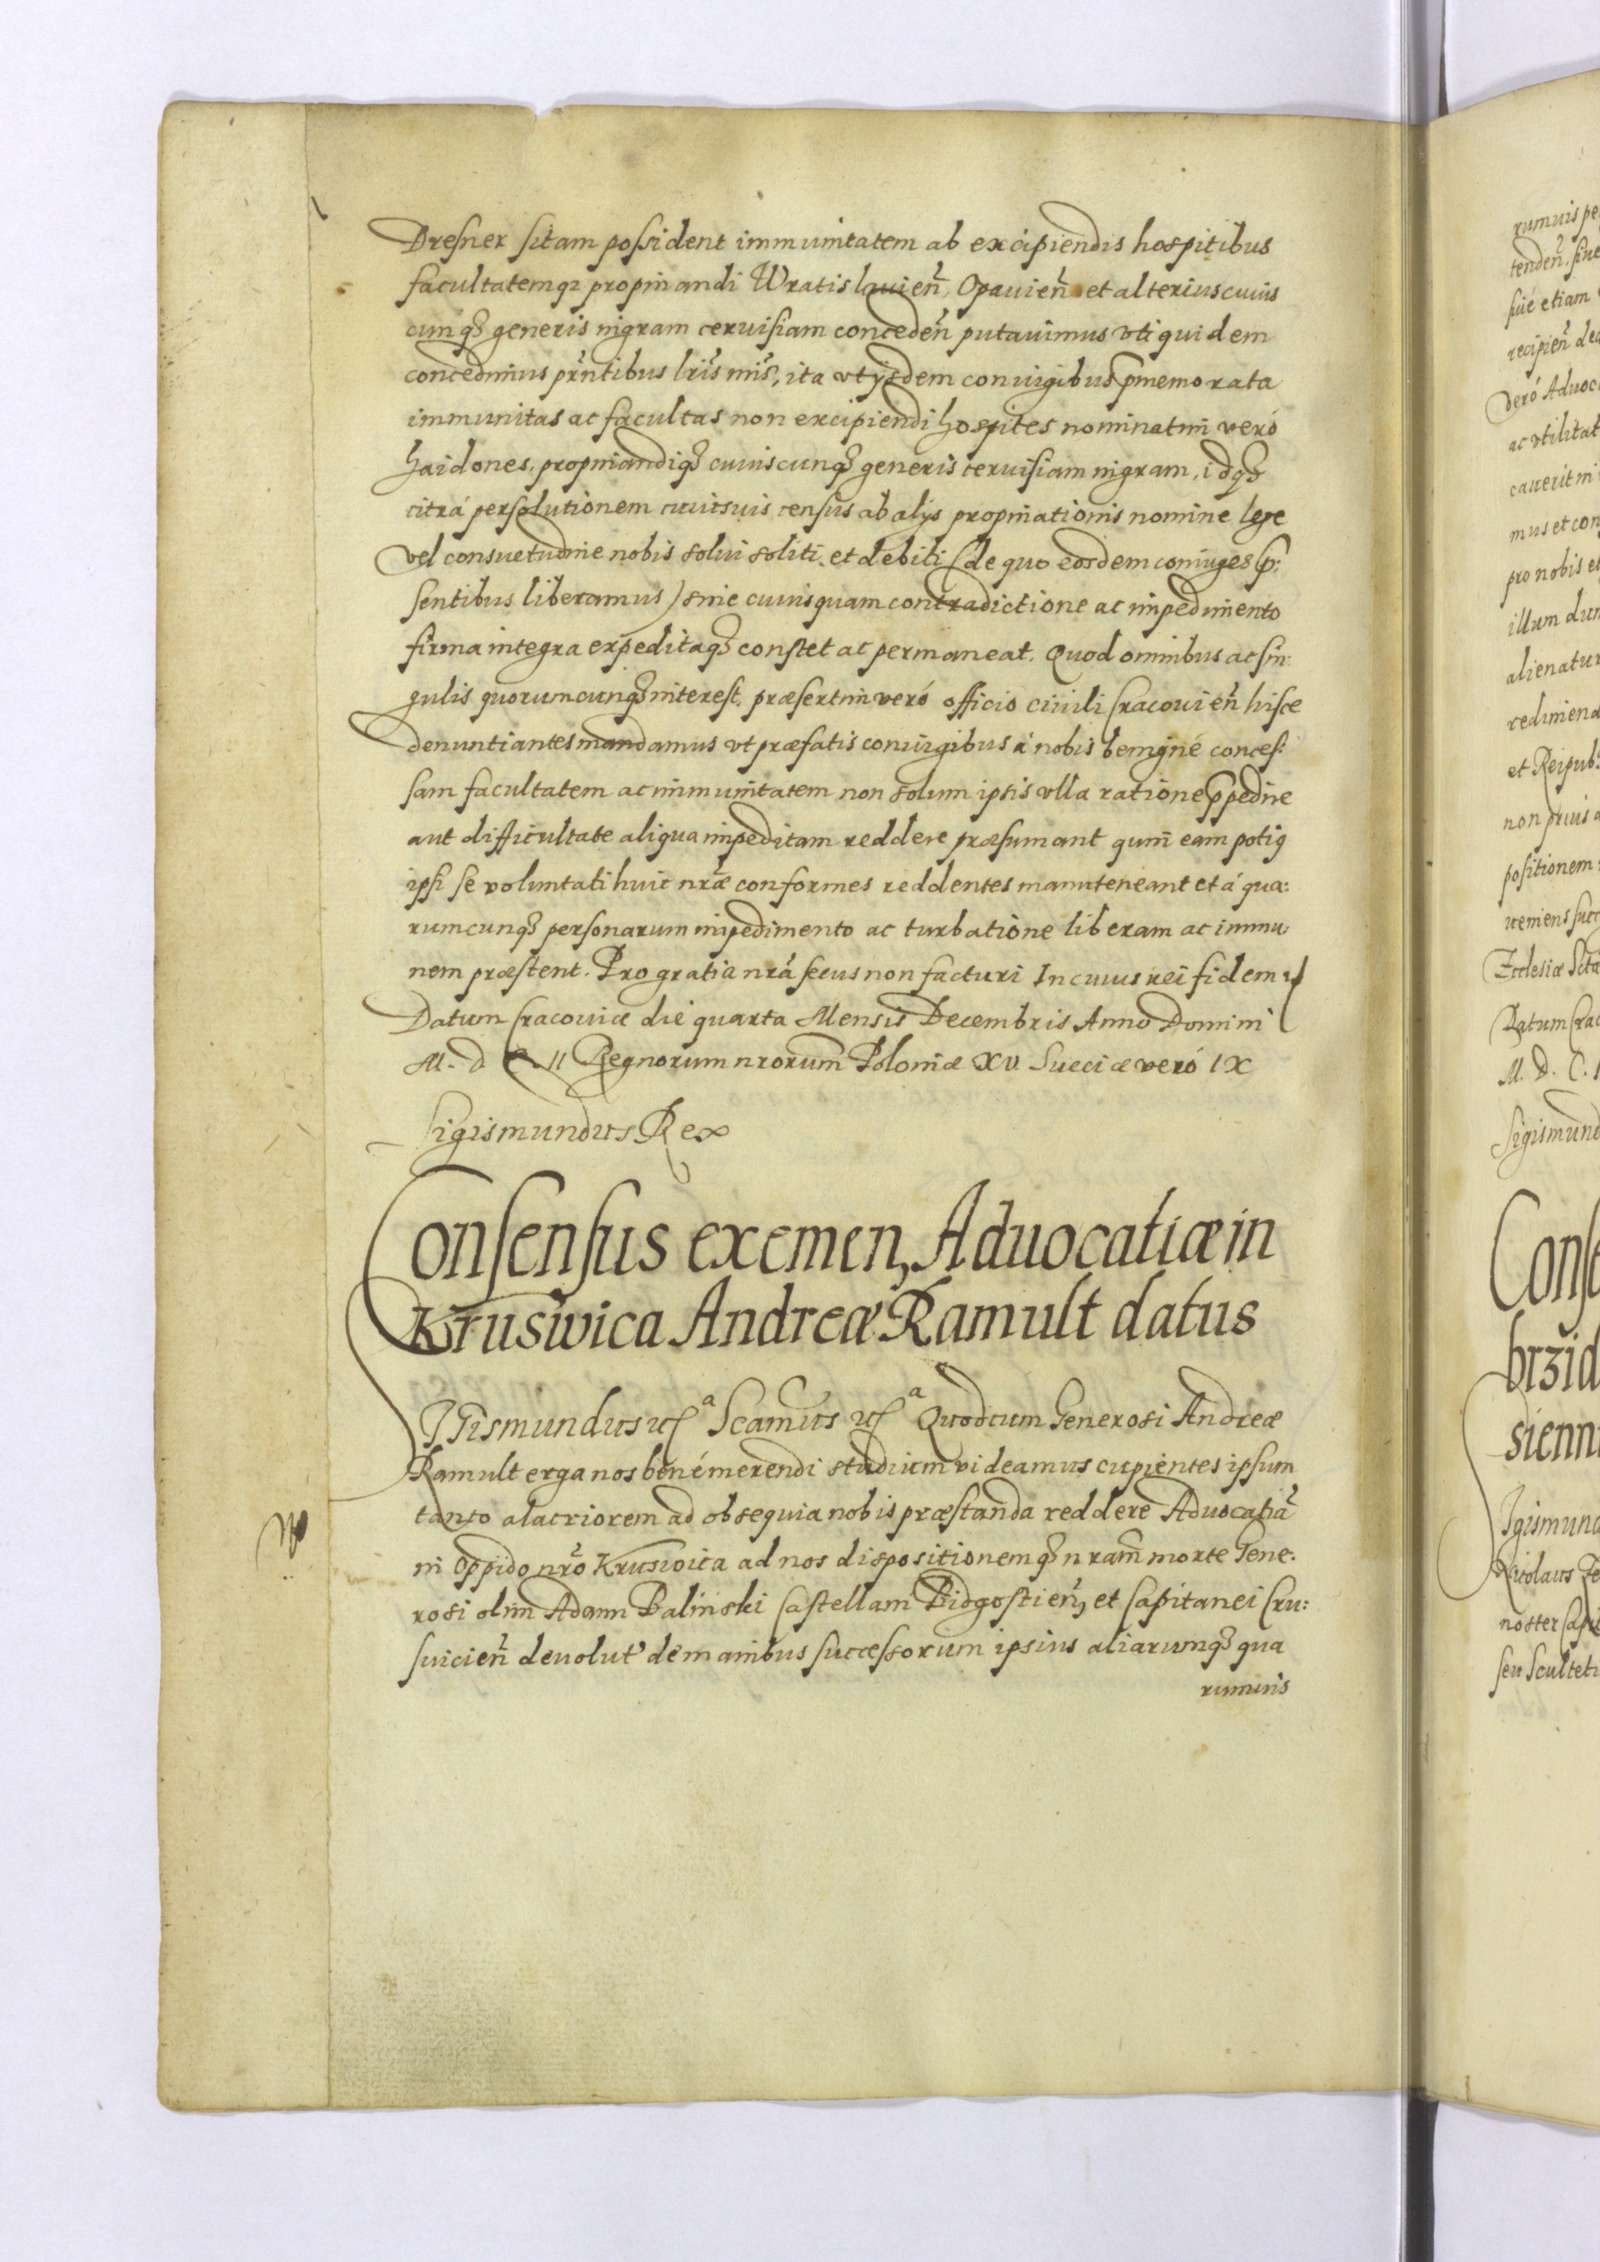 Dresner sitam possident immunitatem ab excipiendis hospitibus
facultatemq3 propinandi Wratislauien̄, Opauien̄ et alterius cuius
cunq3 generis nigram ceruisiam conceden̄ putauimus vti quidem
concedimus pr̄ntibus lr̄is nr̄is, ita vt ijsdem coniugibus p̄memorata
immunitas ac facultas non excipiendi hospites nominatim veró
haidones, propinandiq3 cuiuscunq3 generis ceruisiam nigram, idq3
citrá persolutionem cuiusuis census ab alijs propinationis nomine lege
vel consuetudine nobis solui soliti, et debiti (de quo eosdem coniuges p̄:
sentibus liberamus) sine cuiusquam contradictione ac impedimento
firma integra expeditaq3 constet ac permaneat. Quod omnibus ac sin:
gulis quorumcunq3 interest, præsertim veró officio ciuili Cracouien̄ hisce
denuntiantes mandamus vt præfatis coniugibus á nobis benigné conces:
sam facultatem ac immunitatem non solum ipsis vlla ratione p̄pedire
aut difficultate aliqua impeditam reddere præsumant quin̄ eam potiq
ipsi se voluntati huic nr̄æ conformes reddentes manuteneant et á qua:
rumcunq3 personarum impedimento ac turbatione liberam ac immu:
nem præstent. Pro gratia nr̄á secus non facturi In cuius rei fidem
Datum Cracouiæ die quarta Mensis Decembris Anno Domini
M. D C. II Regnorum nrorum̄ Poloniæ XV Sueciæ veró IX
Sigismundus Rex
Consensus exemen, Aduocatiæ in
Kruswica Andreæ Ramult datus
Sigismundus a Scamus a Quod cum Generosi Andreæ
Ramult erga nos bené merendi studium videamus cupientes ipsum
tanto alacriorem ad obsequia nobis præstanda reddere Aduocatiā
in Oppido nr̄o Kruswica ad nos dispositionemq3 nram̄ morte Gene:
rosi olim Adam Balinski Castellani Bidgostien̄, et Capitanei Cru:
suicien̄ deuolut' de manibus successorum ipsius aliarumq3 qua
rumuis